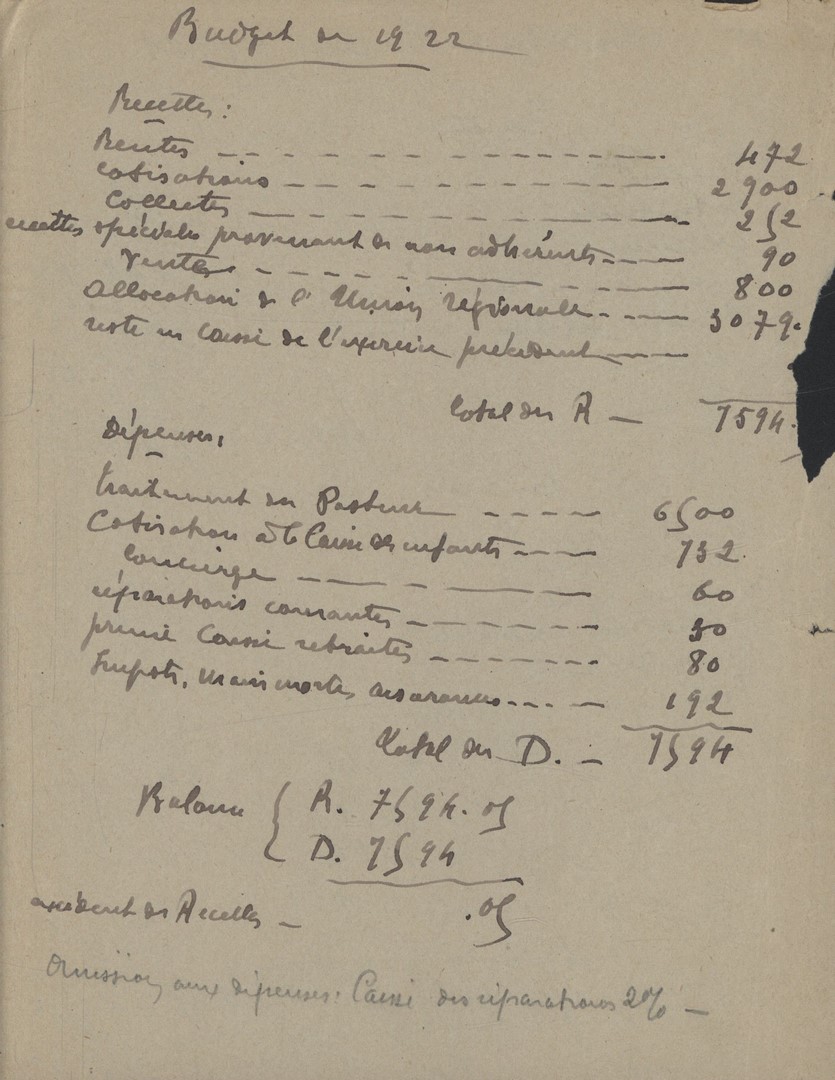 Budget de 1922
Recettes:
Rentes ------ 472
Cotisations ------ 2900
Collectes ------ 252
recettes spéciales provenant de non adhérents ------ 90
Ventes ------ 800
Allocation de l'Union régionale ------ 3079.
reste en caisse de l'exercice précédent ------
total des R — 7594.
Dépenses.
traitement du Pasteur ------ 6500
Cotisation à la Caisse des enfants ------ 732.
Concierge ------ 60
réparations courantes ------ 30
prime Caisse retraites ------ 80
Impots, mainmortes assurances ------ 192
total des D. — 7594
Balance { R. 7594.05
D. 7594
excédent de Recettes — .05
Omission aux dépenses: Caisse des réparations 2% —